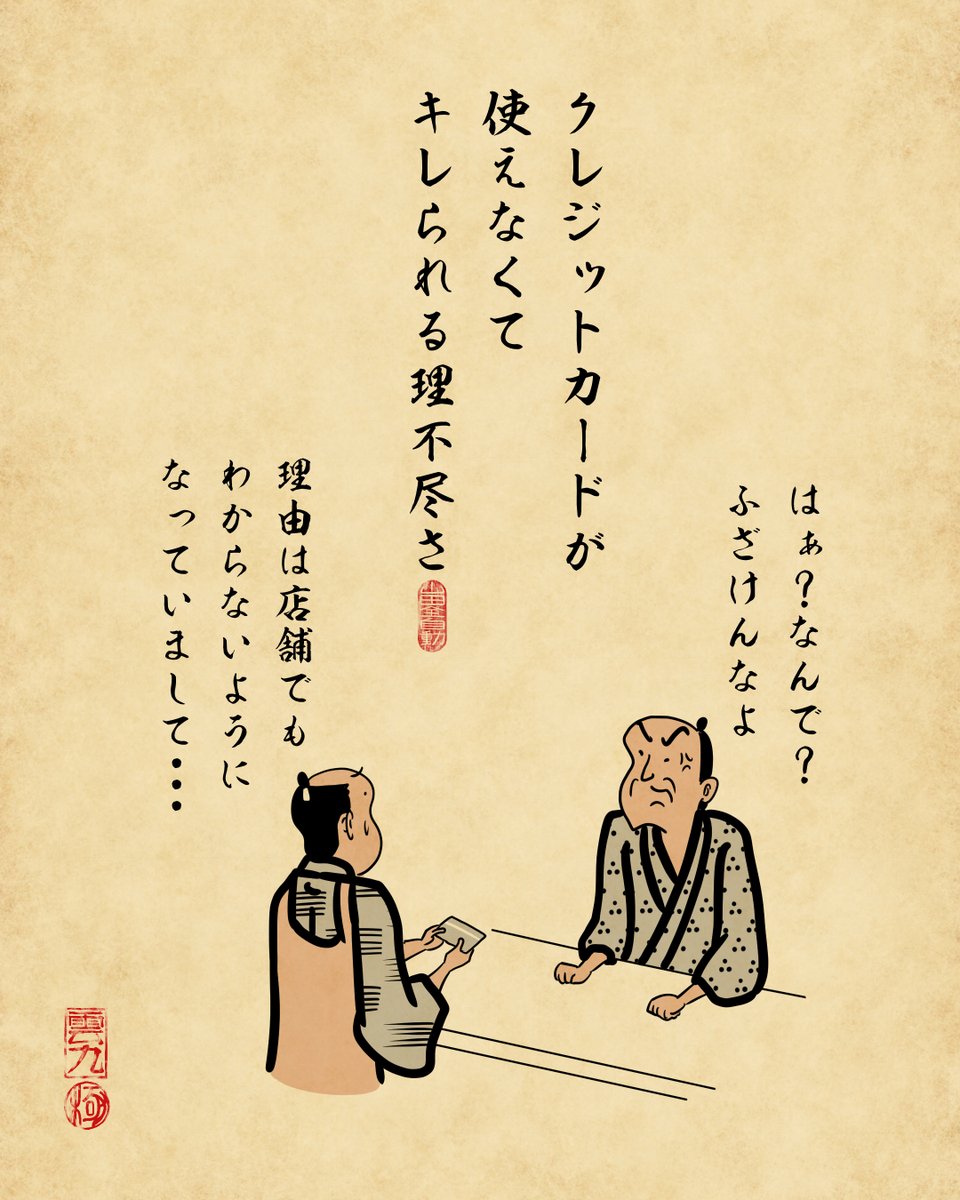 クレジットカードが
使えなくて
キレられる理不尽さ
はぁ？なんで？
ふざけんなよ
理由は店舗でも
わからないように
なっていまして・・・